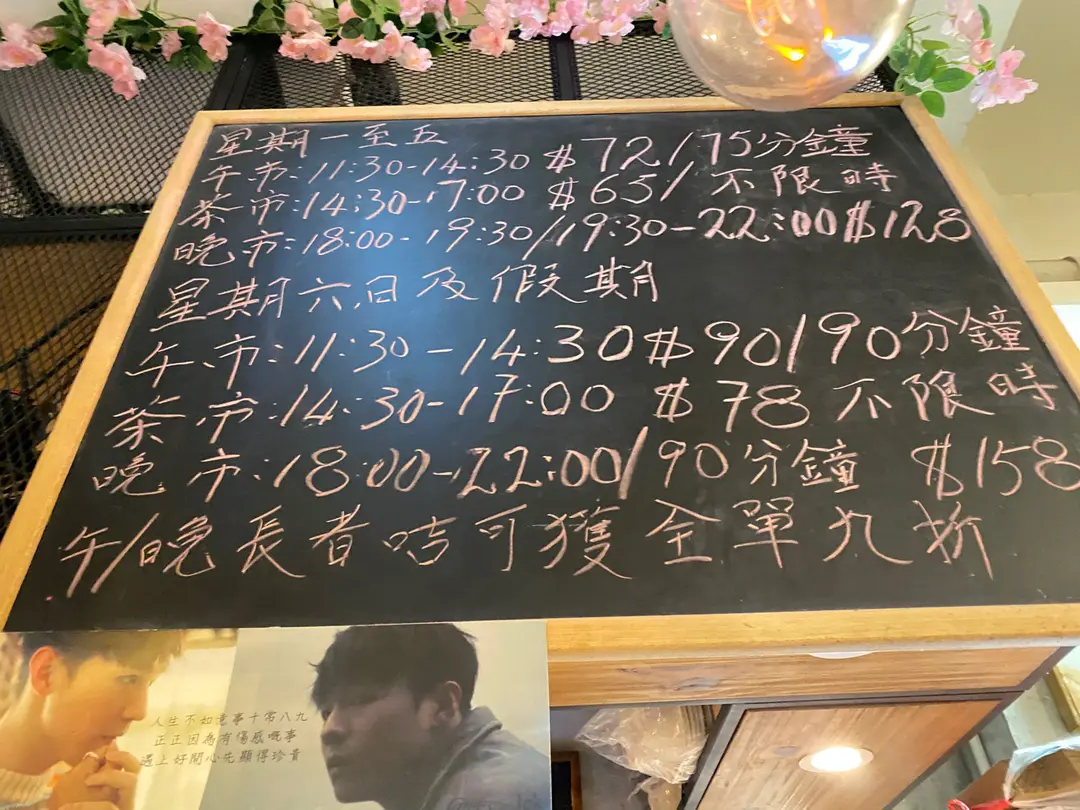 星期一至五
午市:11:30-14:30 $72/75分鐘
茶市:14:30-17:00 $65/不限時
晚市:18:00-19:30/19:30-22:00$128
星期六,日及假期
午市:11:30-14:30$90/90分鐘
茶市:14:30-17:00 $78不限時
晚市:18:00-22:00/90分鐘 $158
午/晚長者咭可獲全單九折
人生不如意事十常八九
正正因為有傷感嘅事
遇上好開心先顯得珍貴